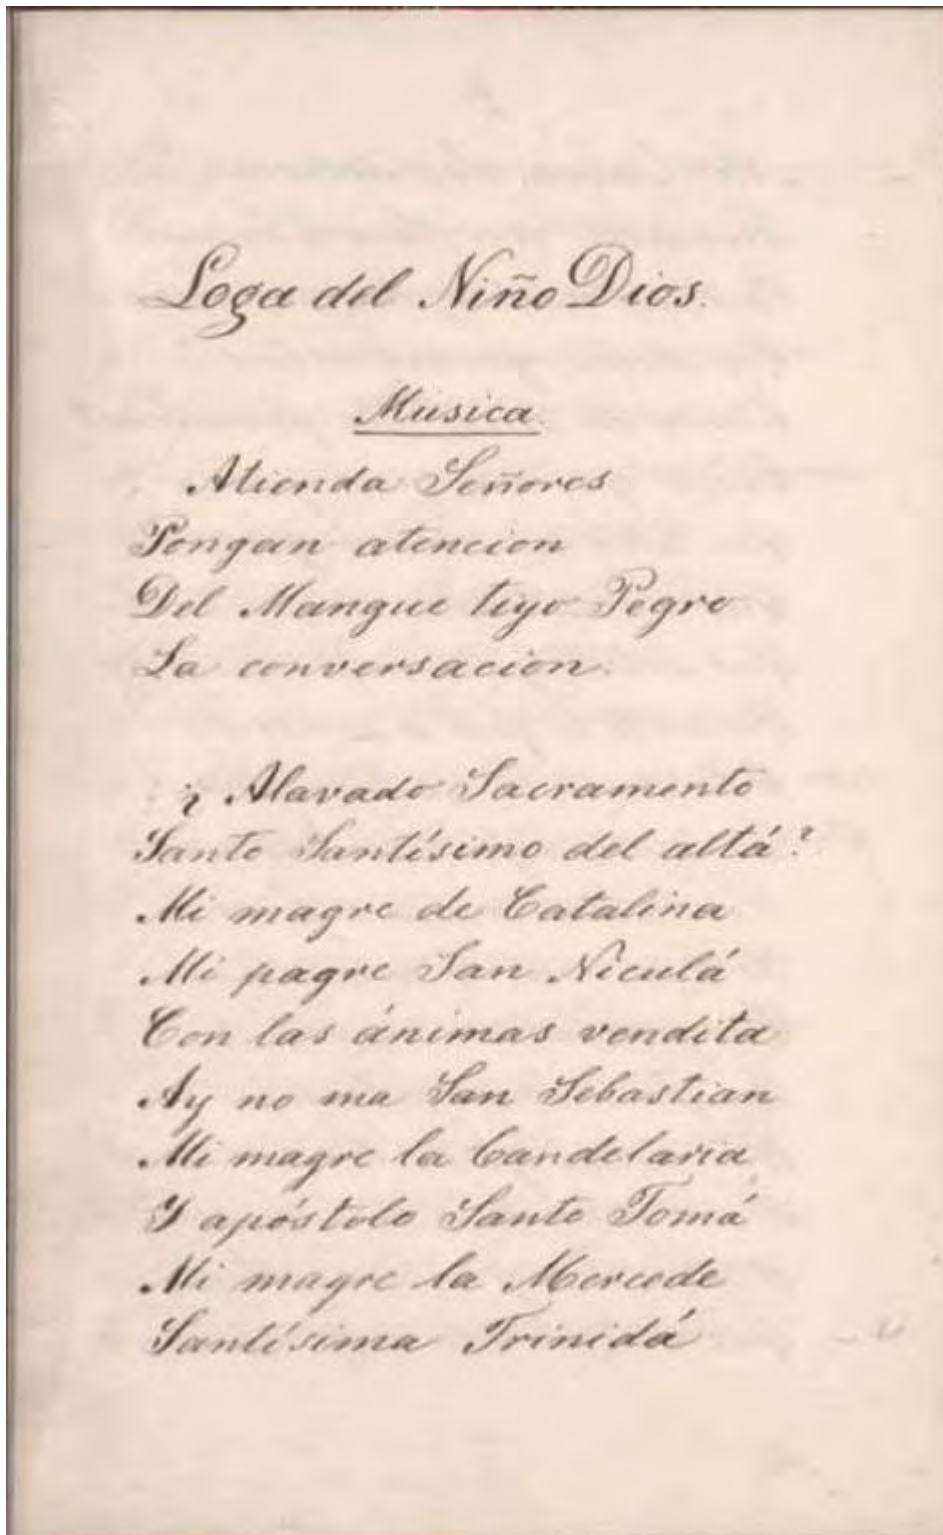 Loga del Niño Dios.
Musica.
Atienda Señores
Pongan atencion
Del Mangue tiyo Pegro
La conversacion.
¿ Alavado Sacramento
Santo Santísimo del altá?
Mi magre de Catalina
Mi pagre San Niculá
Con las ánimas vendita
Ay no ma San Sebastian
Mi magre la Candelaria
Y apóstolo Santo Tomá
Mi magre la Mercede
Santísima Trinidá